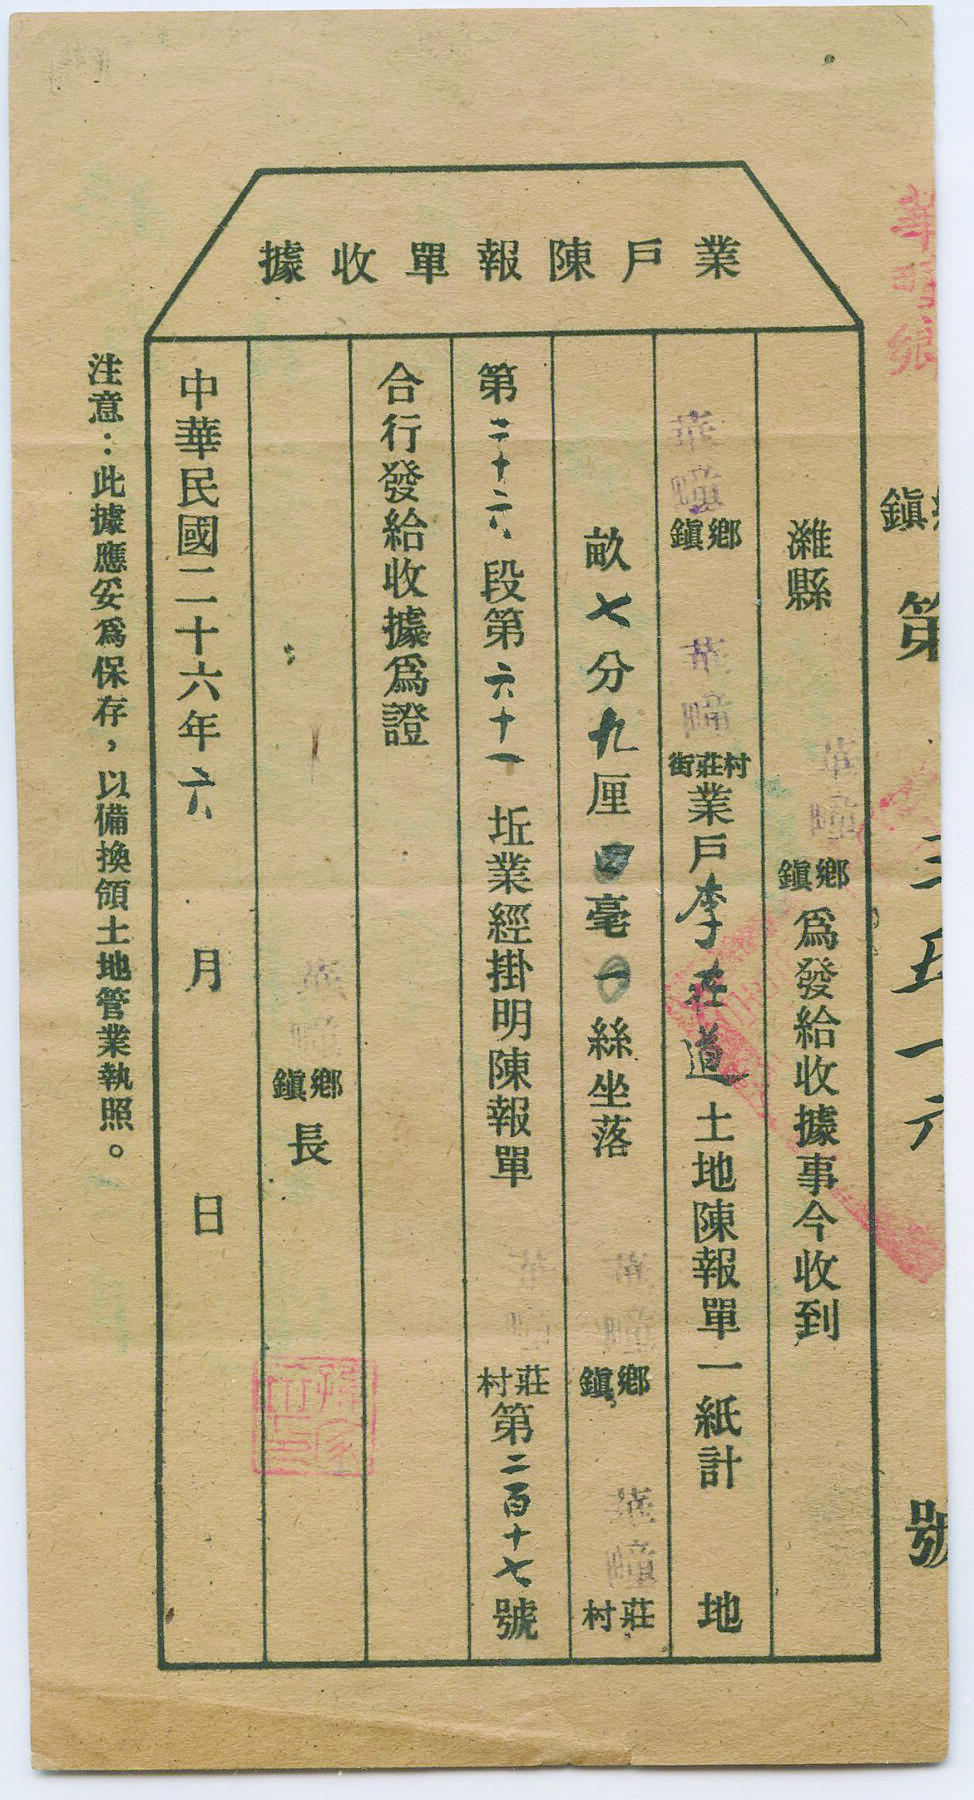 業戶陳報單收據
華疃鄉
鄉鎮第三五一六號
濰縣華疃鄉鎮為發給收據事今收到
華疃鄉鎮華疃村莊街業戶李莊道土地陳報單一紙計地
畝七分九厘四毫〇絲坐落華疃鄉鎮華疃莊村
第二十六段第六十一坵業經掛明陳報單莊村第二百十七號
合行發給收據為證
鄉鎮長
中華民國二十六年六月日
注意：此據應妥為保存，以備換領土地管業執照。